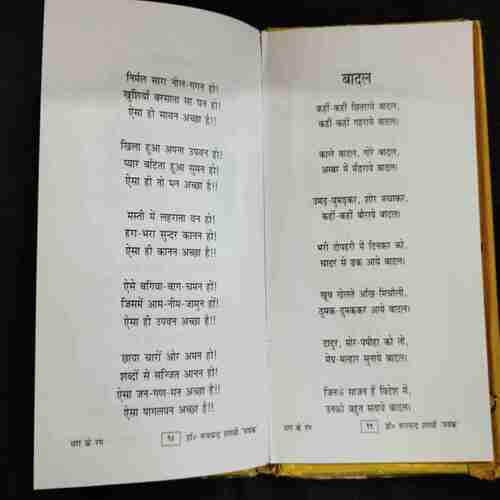 निर्मल सारा नील-गगन हो!
खुशियाँ बरसाता सा घन हो!
ऐसा हो सावन अच्छा है!!
खिला हुआ अपना उपवन हो!
प्यार बाँटता हुआ सुमन हो!
ऐसा हो तो मन अच्छा है!!
मस्ती में लहराता वन हो!
हरा-भरा सुन्दर कानन हो!
ऐसा ही कानन अच्छा है!!
ऐसे बगिया-बाग-चमन हो!
जिसमें आम-नीम-जामुन हों!
ऐसा ही उपवन अच्छा है!!
छाया चारों ओर अमन हो!
शब्दों से सज्जित आनन हो!
ऐसा जन-गण-मन अच्छा है!!
ऐसा पागलपन अच्छा है!!
धरा के रंग
डॉ० रूपचन्द्र शास्त्री 'मयंक'
बादल
कहीं-कहीं छितराये बादल,
कहीं-कहीं गहराये बादल।
काले बादल, गोरे बादल,
अम्बर में मँडराये बादल।
उमड़-घुमड़कर, शोर मचाकर,
कहीं-कहीं बौराये बादल।
भरी दोपहरी में दिनकर को,
चादर में ढक आये बादल।
खूब खेलते आँख मिचौली,
ठुमक-ठुमककर आये बादल।
दादुर, मोर-पपीहा को तो,
मेघ-मल्हार सुनाये बादल।
जिनके साजन हैं विदेश में,
उनको बहुत सताये बादल।
धरा के रंग
डॉ० रूपचन्द्र शास्त्री 'मयंक'